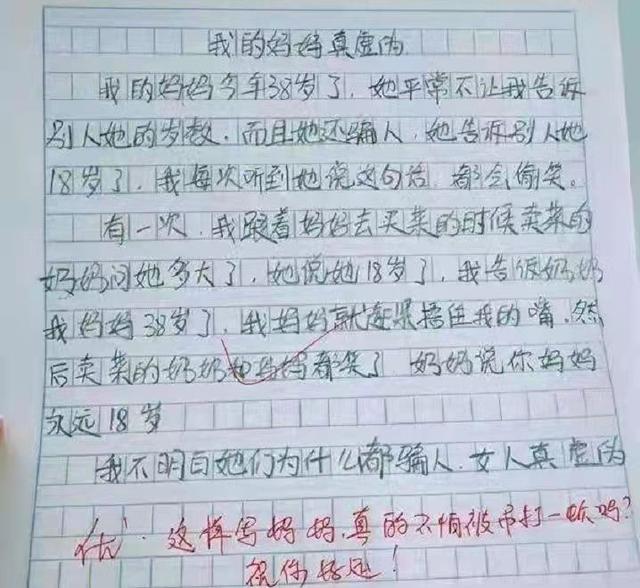 我的妈妈真虚伪
我的妈妈今年38岁了，她平常不让我告诉
别人她的岁数，而且她还骗人，她告诉别人她
18岁了，我每次听到她说这句话，都会偷笑。
有一次，我跟着妈妈去买菜的时候卖菜的
奶奶问她多大了，她说她18岁了，我告饭奶奶
我妈妈38岁了，我妈妈就赶紧捂住我的嘴，然
后卖菜的奶奶和妈妈都笑了 奶奶说你妈妈
永远18岁
我不明白她们为什么都骗人，女人真虚伪
优⁺ 这样写妈妈，真的不怕被吊打一顿吗？
祝你好运！